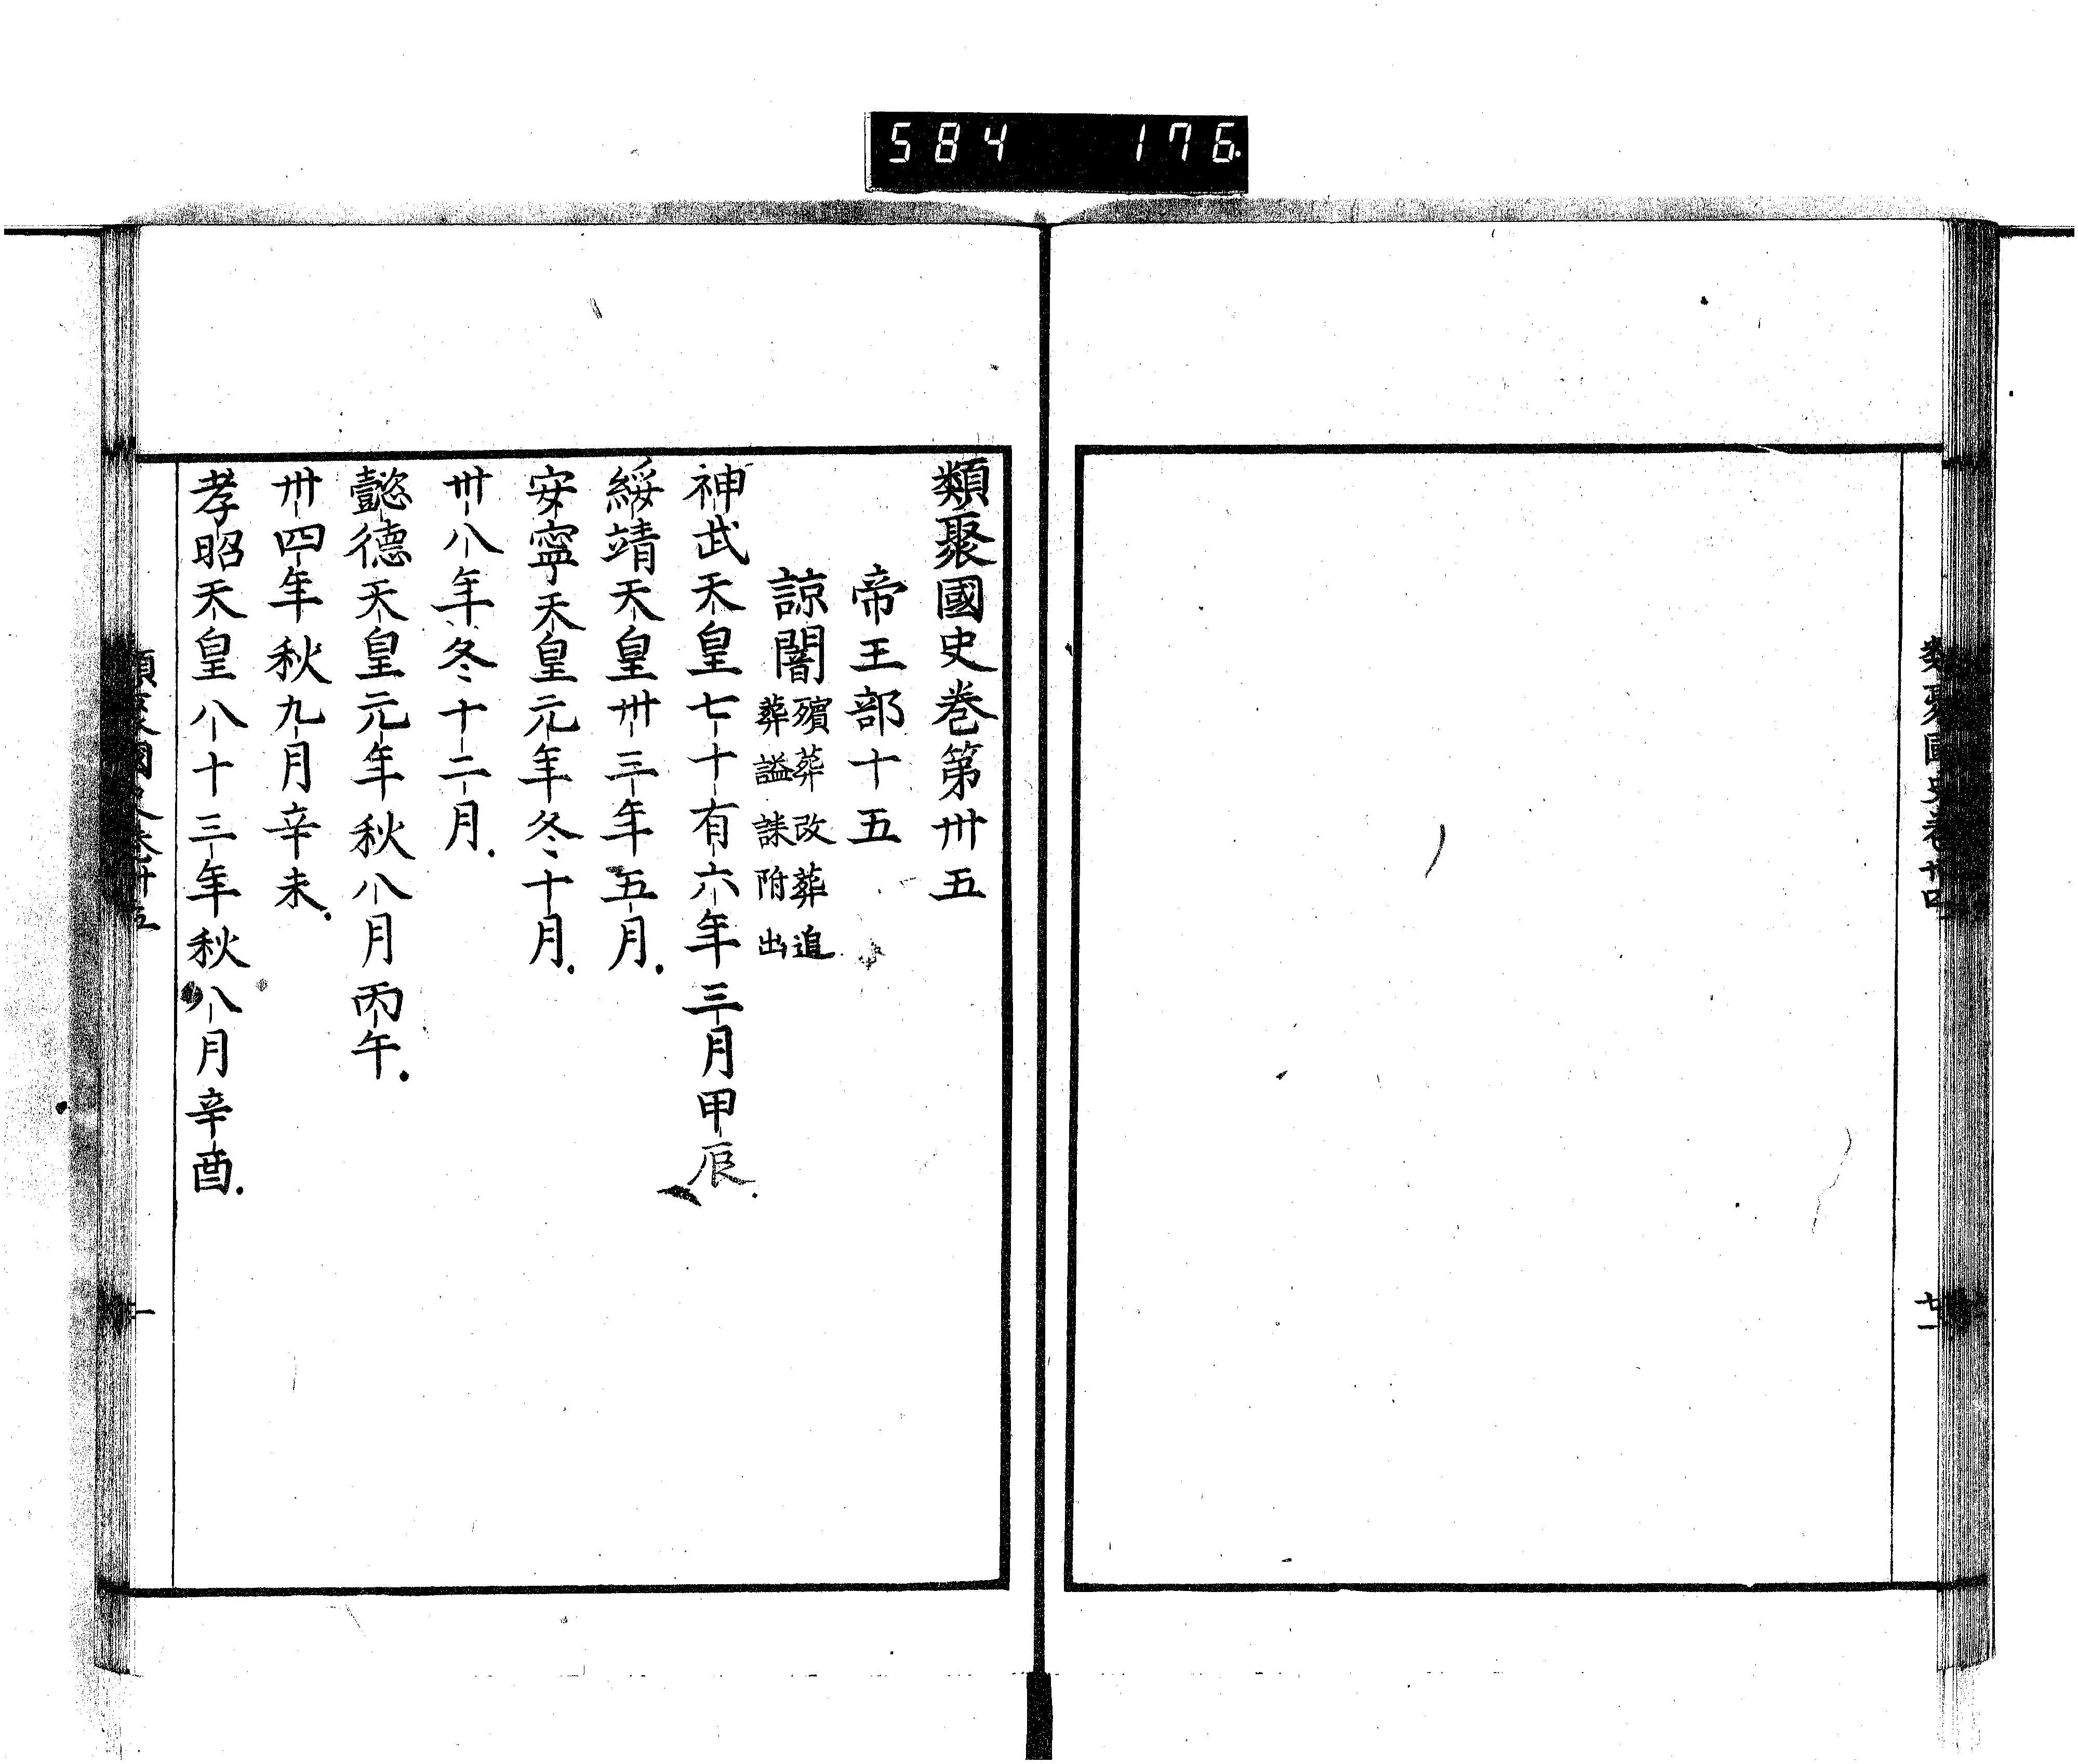 584 176
類聚國史卷第卅五
帝王部十五
諒闇 殯葬改葬追
葬謚誄附出
神武天皇七十有六年三月甲辰
綏靖天皇卅三年五月
安寧天皇元年冬十月
卅八年冬十二月
懿德天皇元年秋八月丙午
卅四年秋九月辛未
孝昭天皇八十三年秋八月辛酉
一